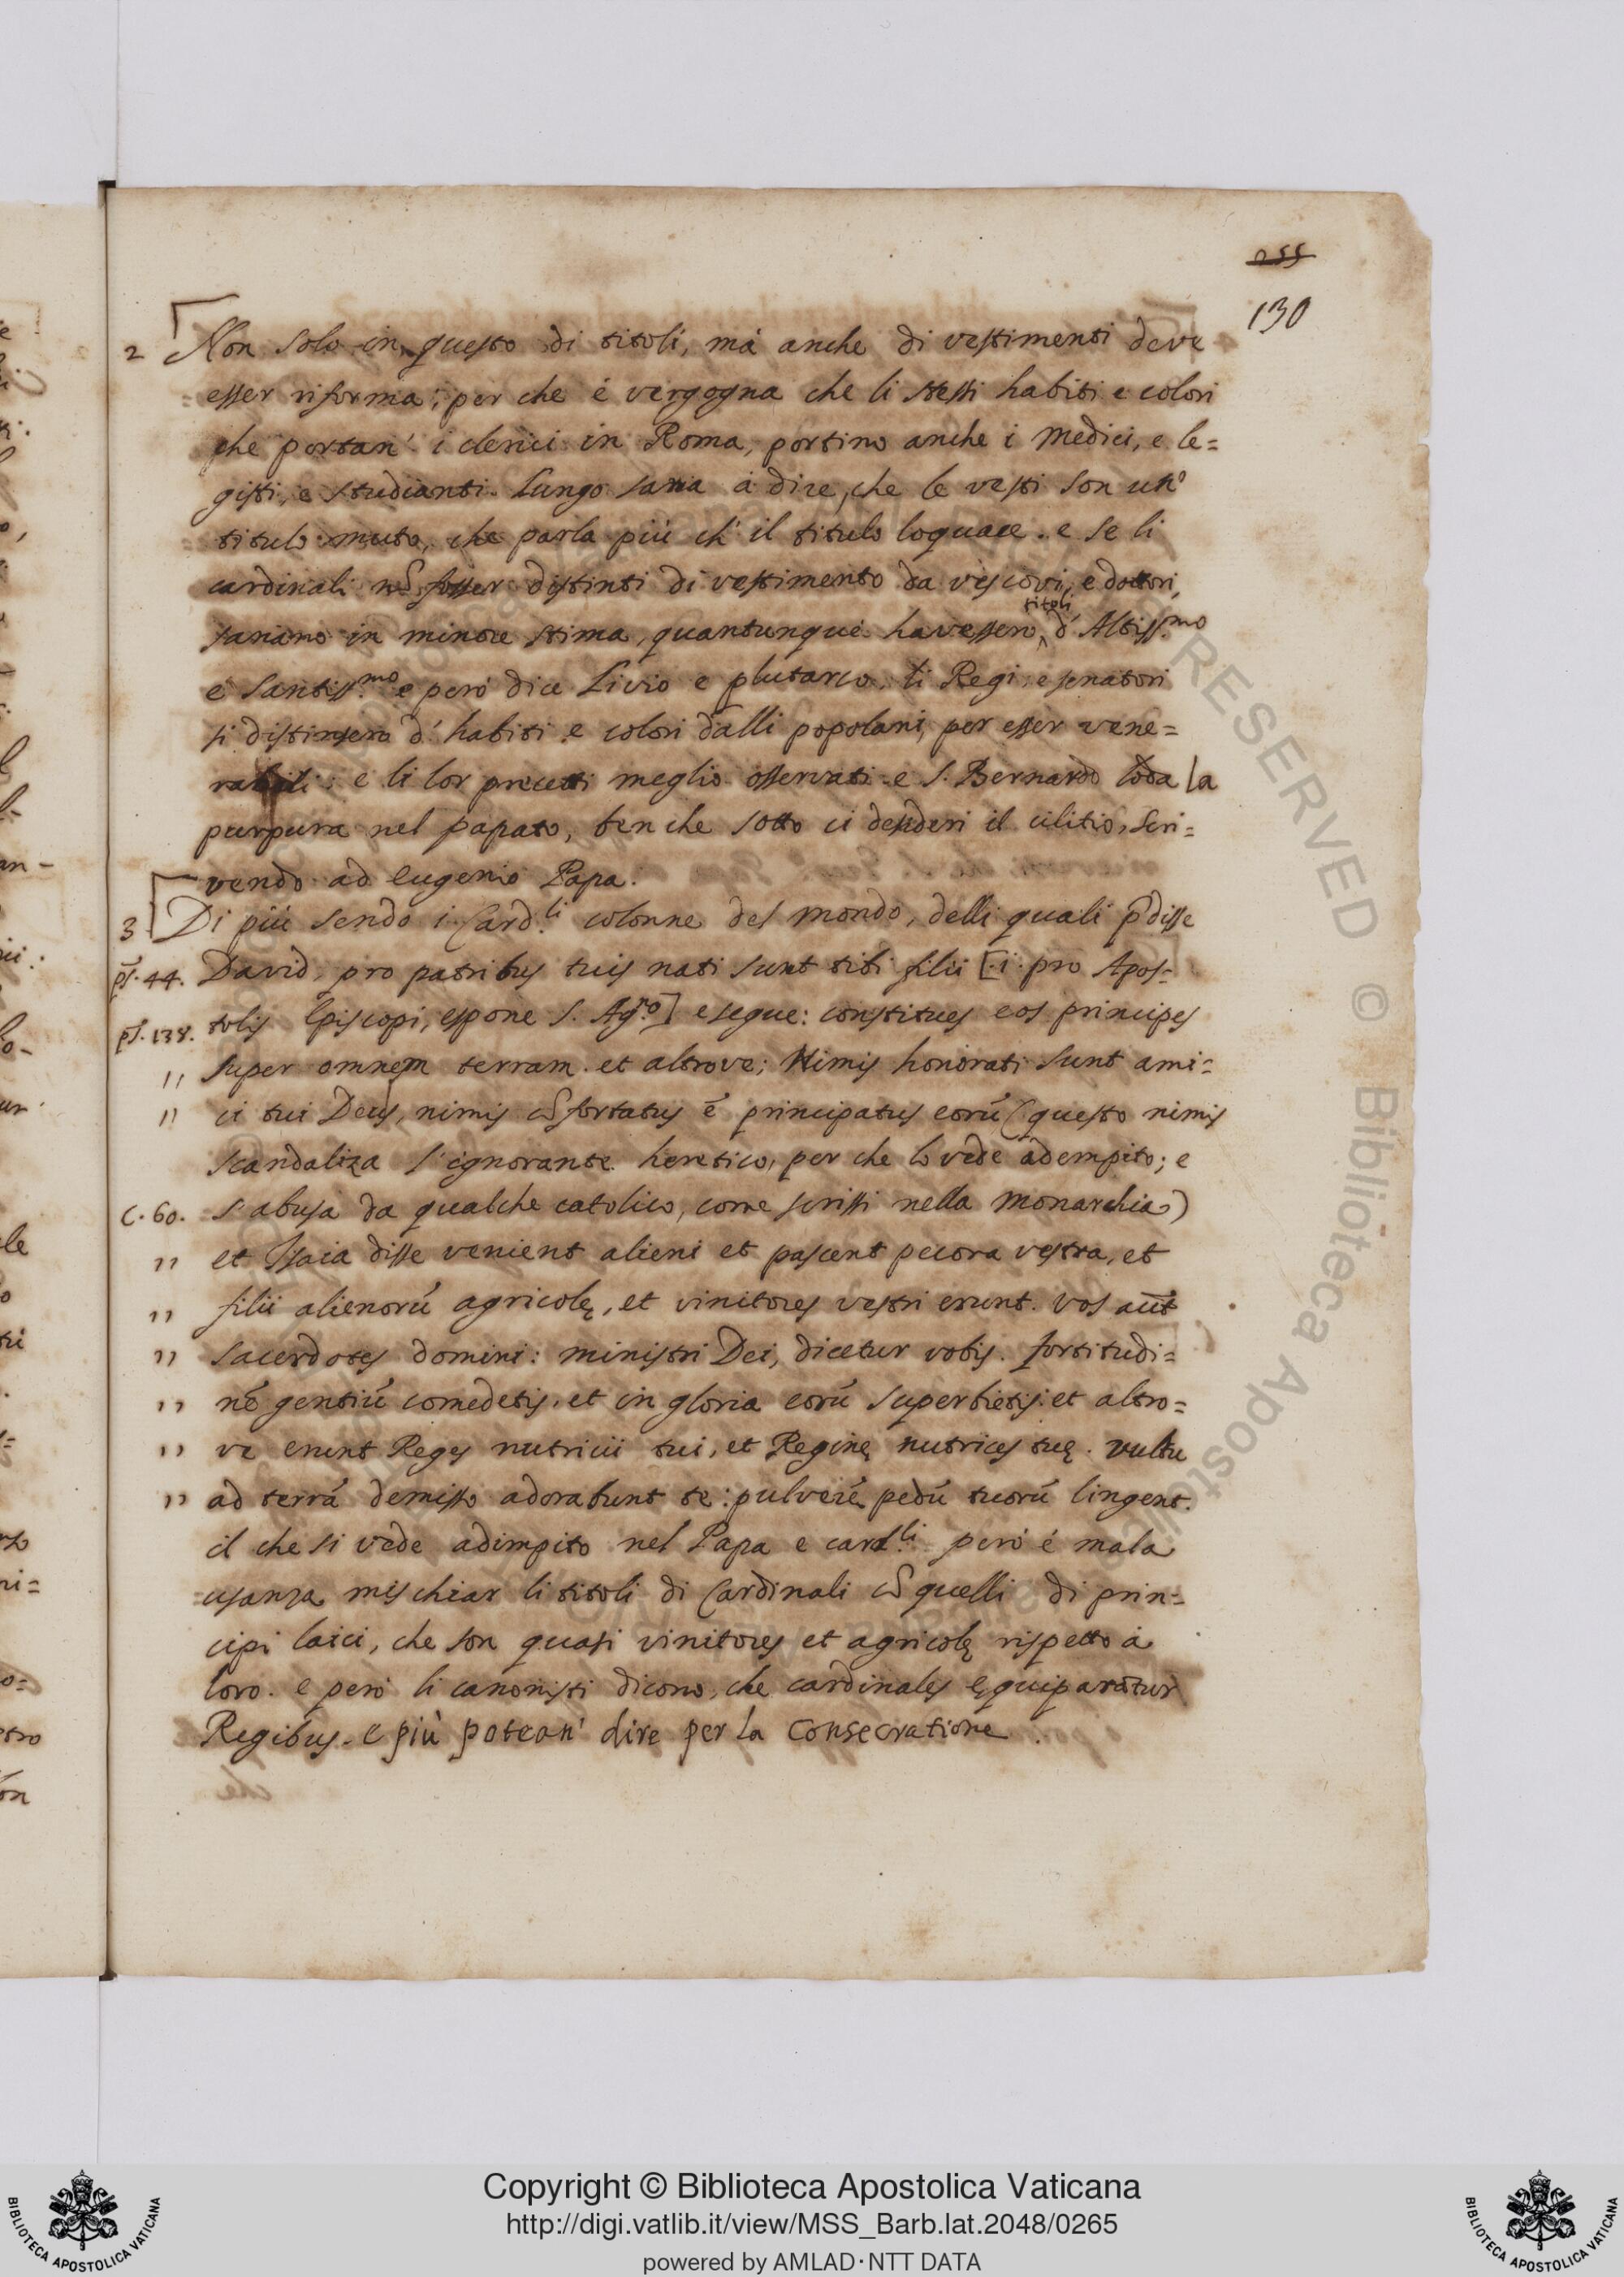 255
130
2 Non solo in questo di titoli, mà anche di vestimenti deve
esser riforma; per che é vergogna che li stessi habiti e colori
che portan' i clerici in Roma, portino anche i Medici, e le=
gisti, e studianti. Lungo saria á dire, che le vesti son un'
titulo muto, che parla piú ch' il titulo loquace. e se li
cardinali nõ fosser distinti di vestimento da vescovi, e dottori,
sariano in minore stima, quantunque havessero titoli d' Altiss.mo
e Santiss.mo e peró dice Livio e plutarco, li Regi e senatori
si distinsero d' habiti e colori dalli popolani, per esser vene=
rabili: e li lor precetti meglio osservati e S. Bernardo loda la
purpura nel papato, ben che sotto ci desideri il cilitio, scri=
vendo ad Eugenio Papa.
3 Di piú sendo i Card.li colonne del mondo, delli quali p̃disse
ps. 44. David, pro patribus tuis nati sunt tibi filii [.i. pro Apos=
ps. 138. tolis Episcopi, espone S. Ag.no] e segue: constitues eos principes
" super omnem terram. et altrove; Nimis honorati sunt ami=
" ci tui Deus, nimis cõfortatus ẽ principatus eorũ (questo nimis
scandaliza l' ignorante heretico, per che lo vede adempito; e
c. 60. s' abusa da qualche catolico, come scrissi nella Monarchia)
" et Isaia disse venient alieni et pascent pecora vestra, et
" filii alienorũ agricolę, et vinitores vestri erunt. vos aũt
" sacerdotes domini: ministri Dei, dicetur vobis. fortitudi=
" nẽ gentiũ comedetis, et in gloria eorũ superbietis; et altro=
" ve erunt Reges nutricii tui, et Reginę nutrices tuę. vultu
" ad terrã demisso adorabunt te: pulverẽ pedũ tuorũ lingent.
il che si vede adimpito nel Papa e card.li peró é mala
usanza mischiar li titoli di Cardinali cõ quelli di prin=
cipi laici, che son quasi vinitores et agricolę rispetto á
loro. e peró li canonisti dicono, che cardinales ęquiparãtur
Regibus. e piú potean' dire per la Consecratione.
RESERVED © Biblioteca Apostolica
Copyright © Biblioteca Apostolica Vaticana
http://digi.vatlib.it/view/MSS_Barb.lat.2048/0265
powered by AMLAD·NTT DATA
BIBLIOTECA APOSTOLICA VATICANA
BIBLIOTECA APOSTOLICA VATICANA